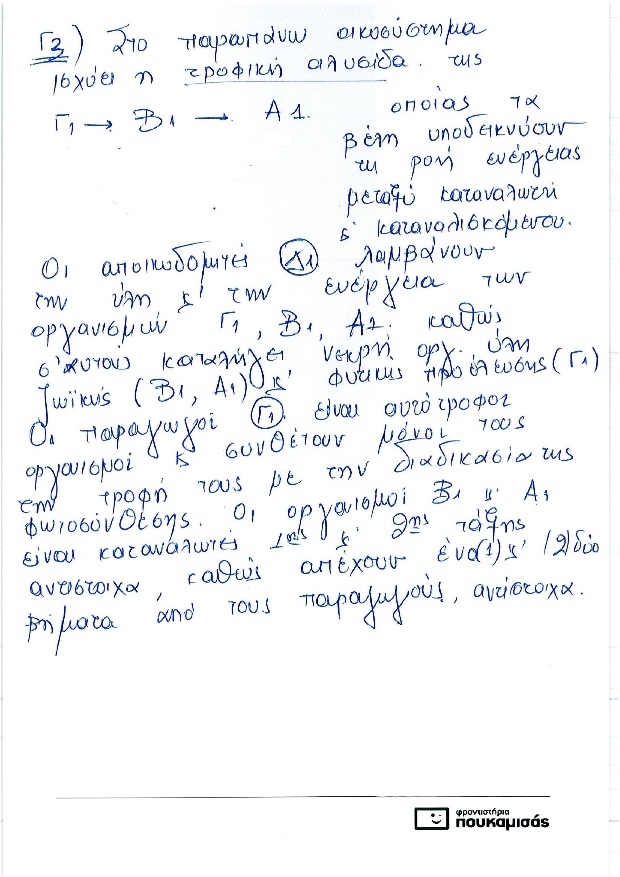 Γ3) Στο παραπάνω οικοσύστημα
ισχύει η τροφική αλυσίδα της
Γ1 → Β1 → Α1. οποίας τα
βέλη υποδεικνύουν
τη ροή ενέργειας
μεταξύ καταναλωτή
κ' καταναλισκόμενου.
Οι αποικωδομητές Δ1 λαμβάνουν
την ύλη κ' την ενέργεια των
οργανισμών Γ1, Β1, Α1 καθώς
σ'αυτούς καταλήγει νεκρή οργ. ύλη
ζωϊκής (Β1, Α1) κ' φυτικής προέλευσης (Γ1)
Οι παραγωγοί Γ1 είναι αυτότροφοι
οργανισμοί κ συνθέτουν μόνοι τους
την τροφή τους με την διαδικασία της
φωτοσύνθεσης. Οι οργανισμοί Β1 κ' Α1
είναι καταναλωτές 1ης κ' 2ης τάξης
αντιστοιχα, καθώς απέχουν ένα(1) κ' (2)δύο
βήματα από τους παραγωγούς, αντίστοιχα.
φροντιστήρια
πουκαμισάς